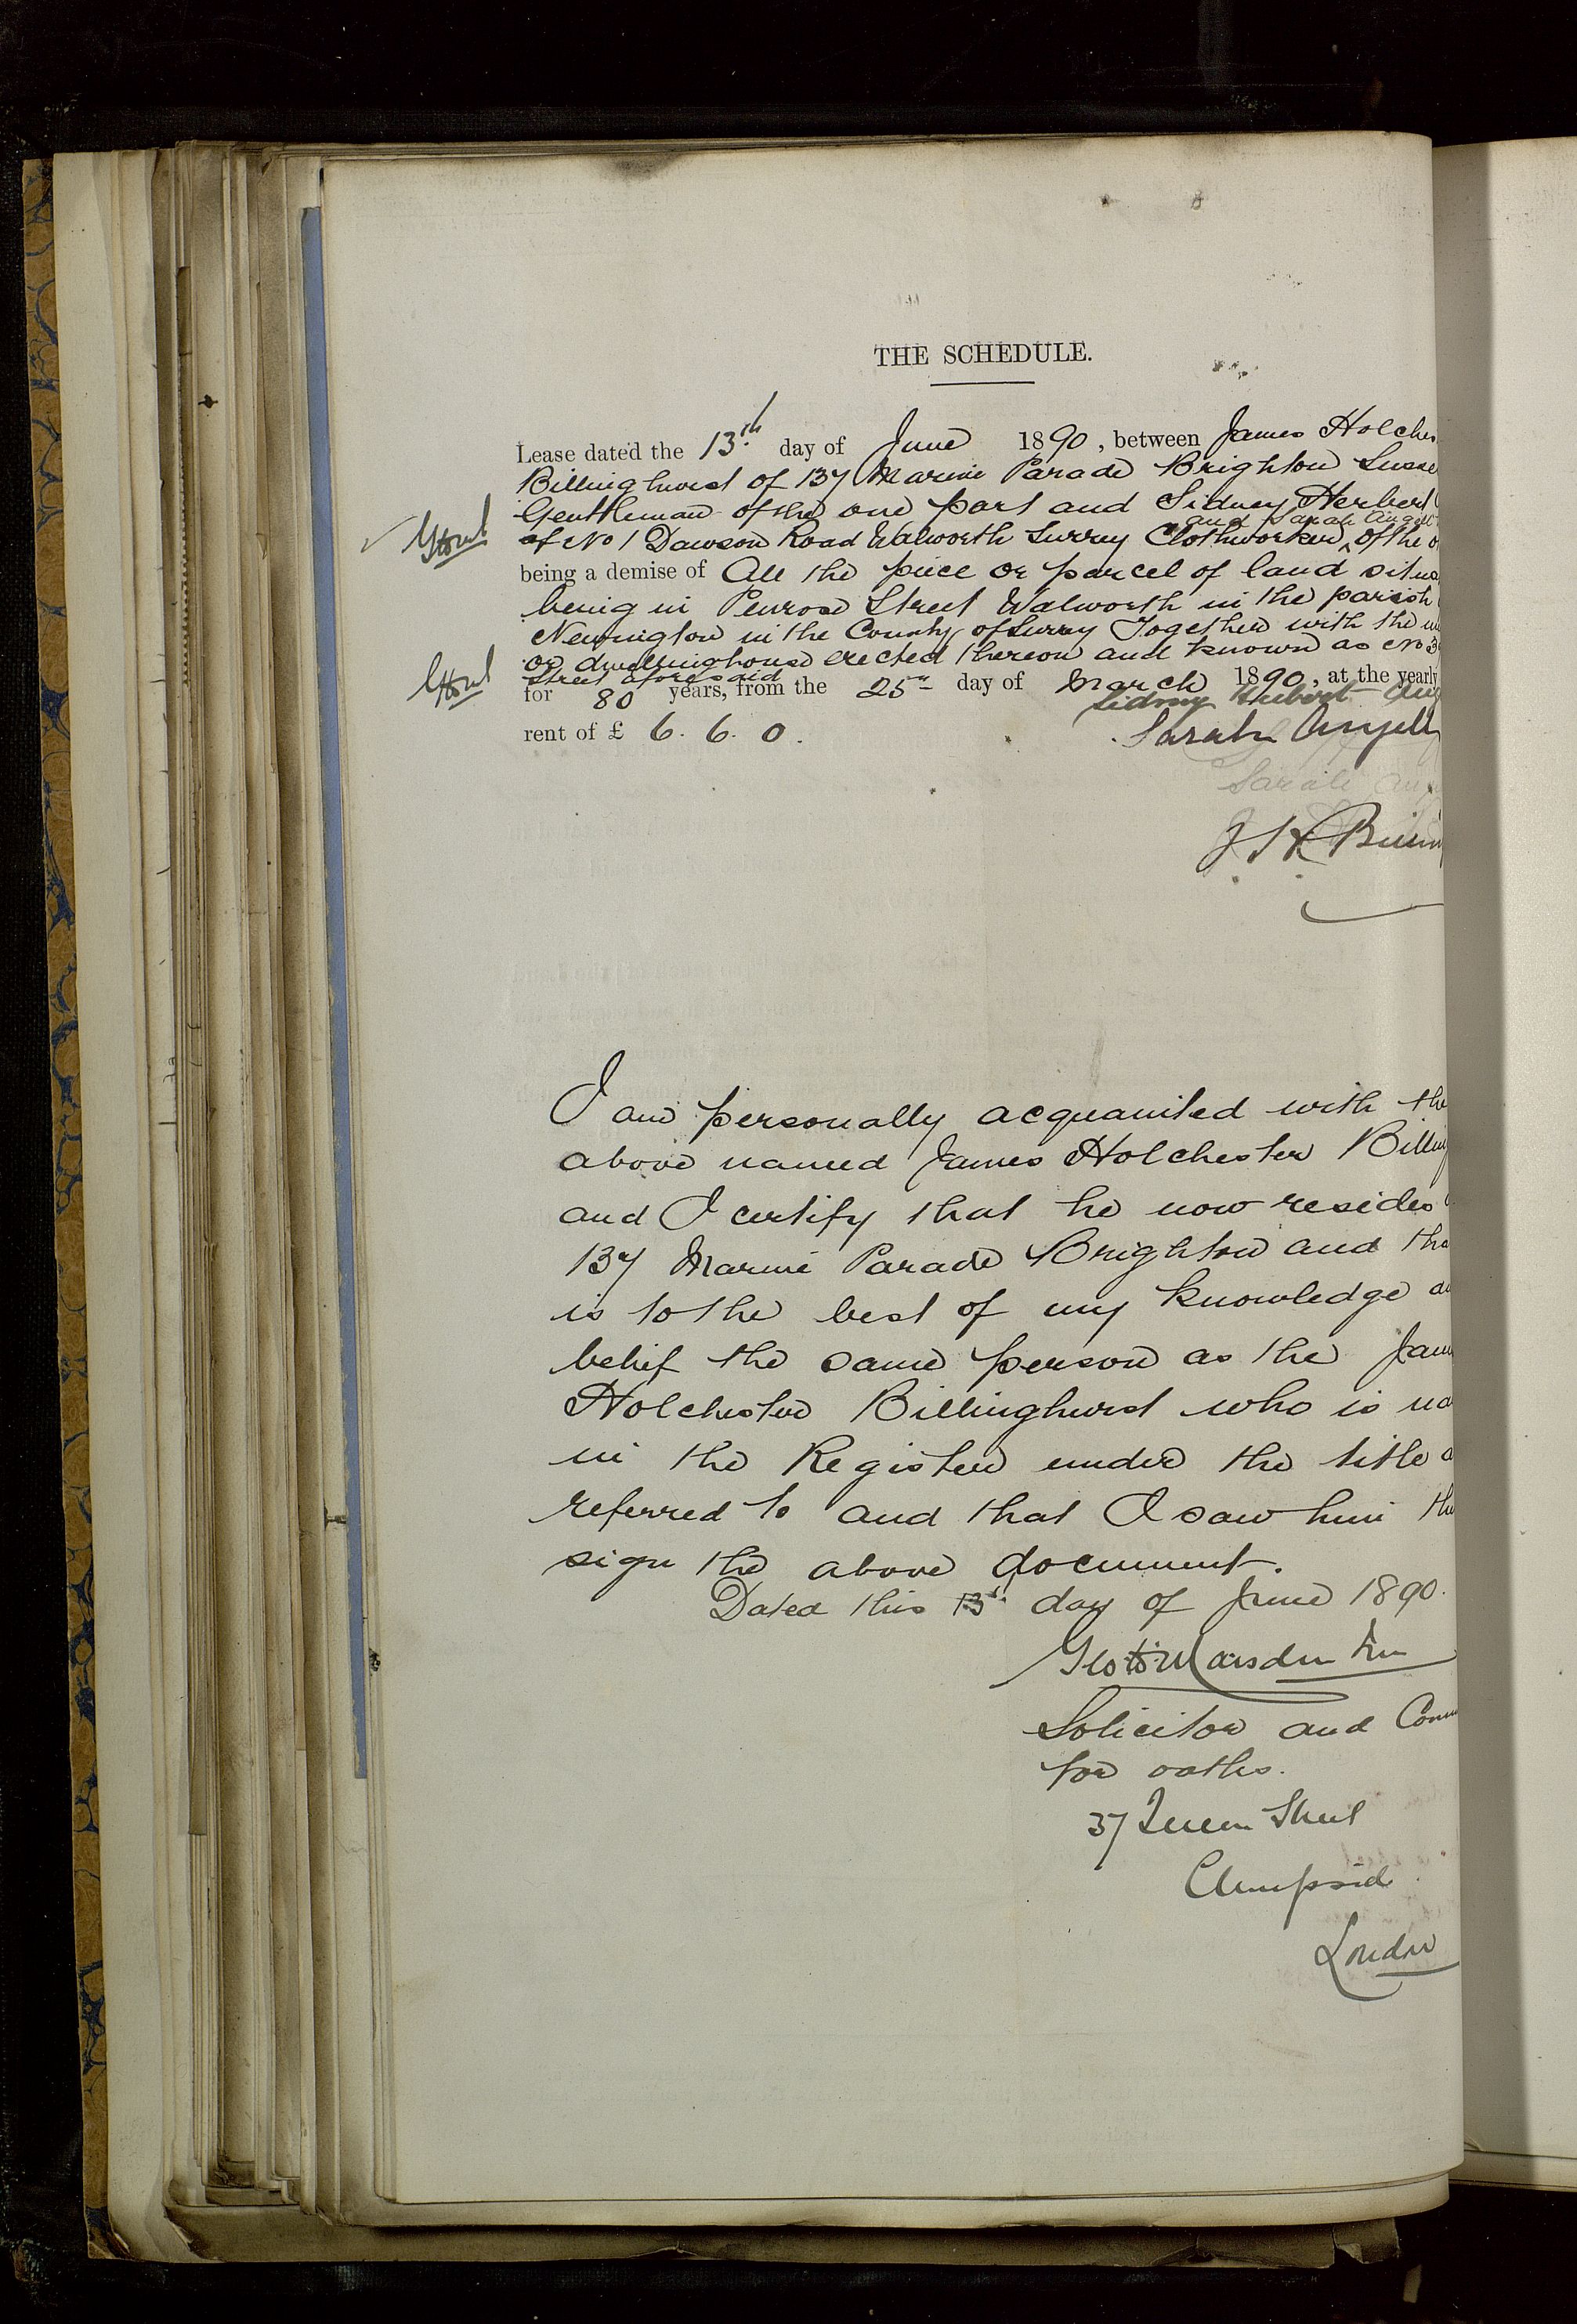 THE SCHEDULE.
Lease dated the 13th day of June 1890, between James Holches
Billinghurst of 137 Marine Parade Brighton Susse
Gentleman of the one part and Sidney Herbert
and Sarah Angell
of No 1 Dawson Road Walworth Surrey Clothworker of the o
being a demise of All the piece or parcel of land situa
being in Penrose Street Walworth in the parish
Newington in the County of Surrey Together with the
or dwellinghouse erected thereon and known as No 3
Street aforesaid
for 80 years, from the 25th day of March 1890, at the yearly
Sidney Herbert Ang
rent of £ 6. 6. 0.
Sarah Angell
Sarah Ang
J H Billin
I am personally acquainted with the
above named James Holchester Billing
and I certify that he now resides
137 Marine Parade Brighton and tha
is to the best of my knowledge an
belief the same person as the Jam
Holchester Billinghurst who is na
in the Register under the title a
referred to and that I saw him the
sign the above document.
Dated this 13th day of June 1890.
Marsden
Solicitor and Comm
for oaths.
37 Queen Street
Cheapside
London